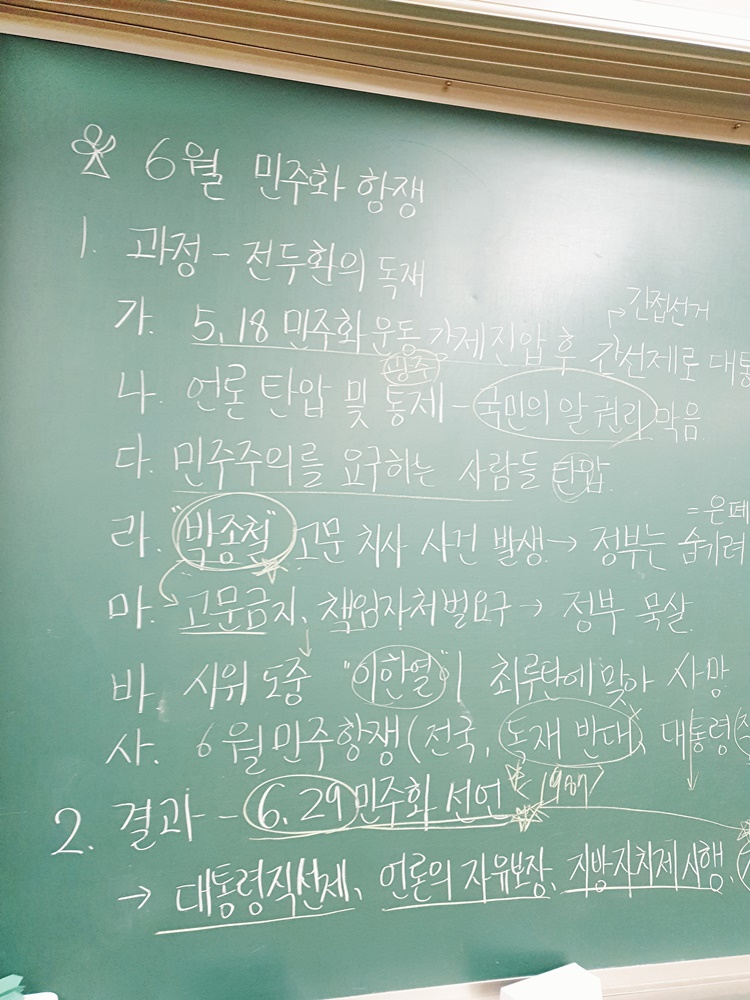 ※ 6월 민주화 항쟁
1. 과정 - 전두환의 독재
간접선거
가. 5.18 민주화운동 강제진압 후 간선제로 대통
광주
나. 언론 탄압 및 통제 - 국민의 알 권리 막음.
다. 민주주의를 요구하는 사람들 탄압.
= 은폐
라. "박종철" 고문 치사 사건 발생 → 정부는 숨기려
마. 고문금지, 책임자처벌요구 → 정부 묵살.
바. 시위 도중 "이한열"이 최루탄에 맞아 사망
사. 6월민주항쟁(전국, 독재 반대, 대통령
2. 결과 - 6.29민주화 선언 (1987)
→ 대통령직선제, 언론의 자유보장, 지방자치제 시행,